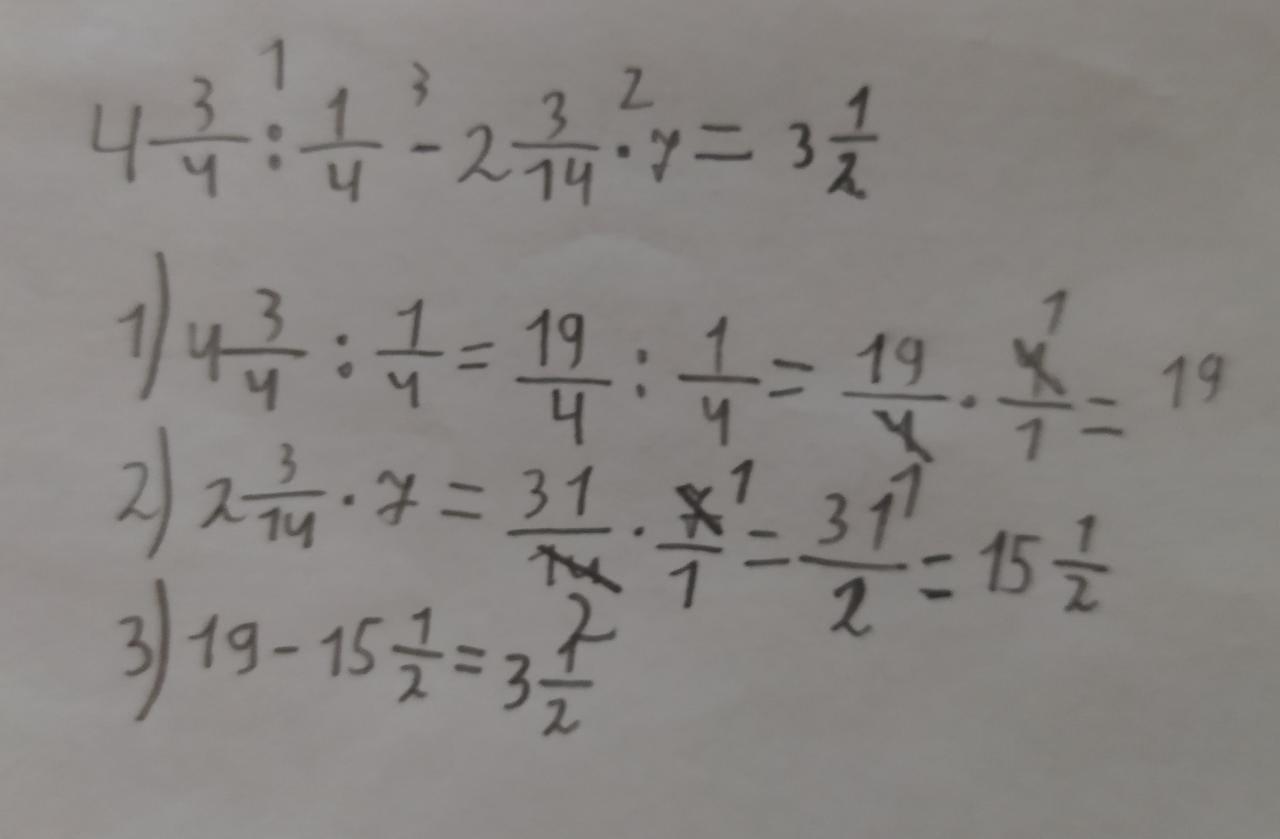 4 3/4 :¹ 1/4 -³ 2 3/14 ·² 7 = 3 1/2
1) 4 3/4 : 1/4 = 19/4 : 1/4 = 19/4 · 4¹/1 = 19
2) 2 3/14 · 7 = 31/14₂ · 7¹/1 = 31¹/2 = 15 1/2
3) 19 - 15 1/2 = 3 1/2